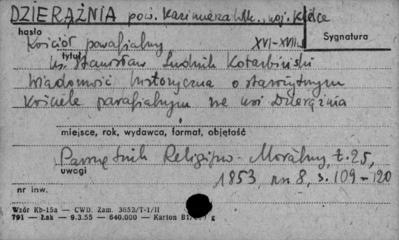 DZIERĄŻNIA pow. Kazimierza Wlk., woj. Kielce
hasło
Kościół parafialny XVI-XVII w.
Sygnatura
tytuł
Ks. Stanisław Ludwik Kotarbiński
Wiadomość historyczna o starożytnym
Kościele parafialnym we wsi Dzierążnia
miejsce, rok, wydawca, format, objętość
Pamiętnik Religijno-Moralny, t. 25,
uwagi
1853, nr 8, s. 109-120
nr inw.
Wzór Kb-15a — CWD. Zam. 3652/T-1/II
791 — Łak — 9.3.55 — 640.000 — Karton B1/ g